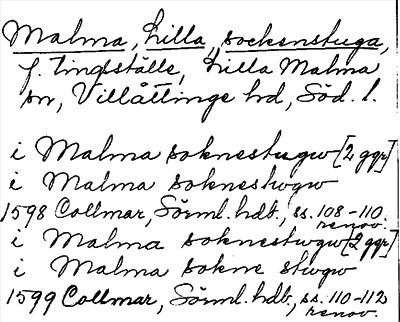 Malma, Lilla, sockenstuga,
f. tingställe, Lilla Malma
sn, Villåttinge hd, Söd. l.
i Malma soknestugw [2 ggr]
i Malma soknestwgw
1598 Collmar, Sörml. hdb., ss. 108-110.
renov.
i Malma soknestwgw [2 ggr]
i Malma sokne stwgw
1599 Collmar, Sörml. hdb., ss. 110-112
renov.